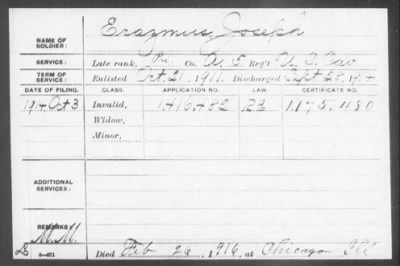 Erazmus, Joseph
NAME OF SOLDIER:
SERVICE: Late rank, Pri Co. A, 5 Reg't U. S. Cav
TERM OF SERVICE: Enlisted Oct. 21, 1911. Discharged Sept 28, 1914
DATE OF FILING. CLASS. APPLICATION NO. LAW. CERTIFICATE NO.
1914, Oct 3 Invalid, 1,416,482 1,175,480
Widow,
Minor,
ADDITIONAL SERVICES:
REMARKS: M.M.
Died Feb 26, 1916, at Chicago Ill